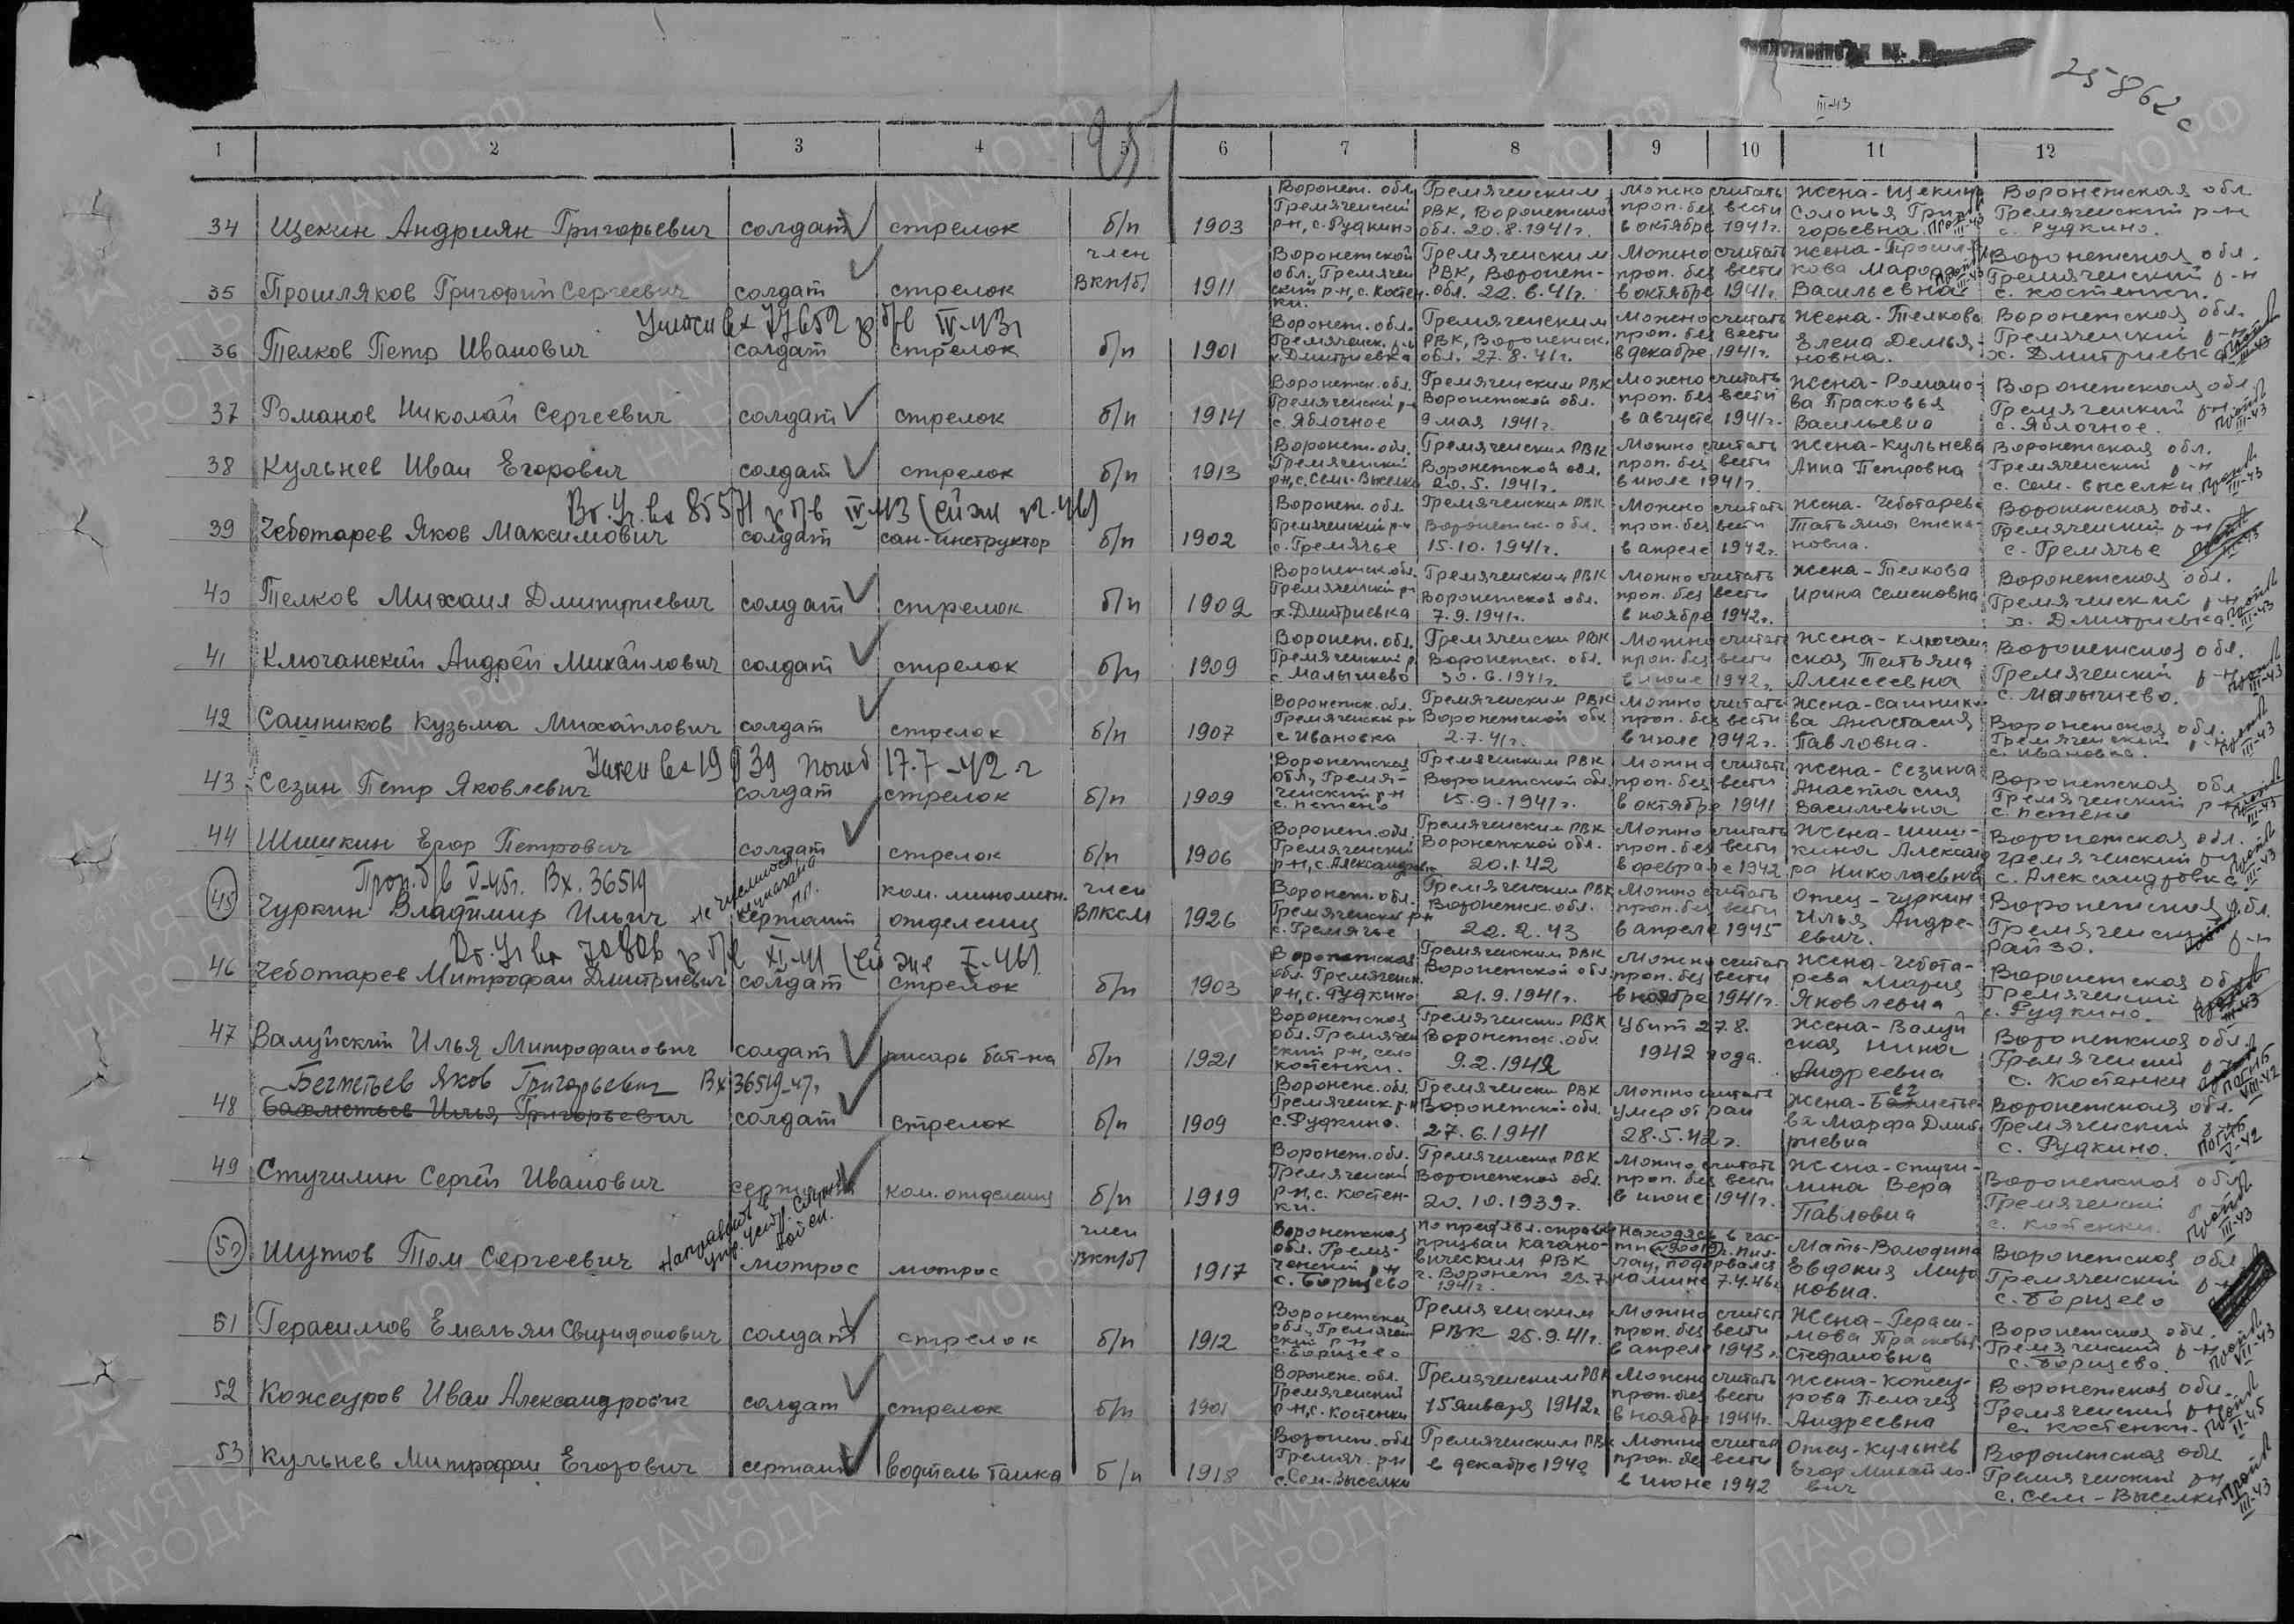 25862с
III-43
1 2 3 4 5 6 7 8 9 10 11 12
34 Щекин Андриян Григорьевич солдат стрелок б/п 1903 Воронеж. обл. Гремяченский р-н, с. Рудкино Гремяченским РВК, Воронежской обл. 20.8.1941г. Можно считать проп. без вести в октябре 1941г. Жена - Щекина Соломья Григорьевна Воронежская обл. Гремяченский р-н с. Рудкино.
35 Прошляков Григорий Сергеевич солдат стрелок член ВКП/б/ 1911 Воронежской обл. Гремяченский р-н, с. Костенки. Гремяченским РВК, Воронеж. обл. 22.6.41г. Можно считать проп. без вести в октябре 1941г. Жена - Прошлякова Васильевна Воронежская обл. Гремяченский р-н с. Костенки.
Учтен вх 77652 р б/в IV-43г
36 Телков Петр Иванович солдат стрелок б/п 1901 Воронеж. обл. Гремяченск. р-н х. Дмитриевка Гремяченским РВК, Воронежск. обл. 27.8.41г. Можно считать проп. без вести в декабре 1941г. Жена - Телкова Елена Демьяновна. Воронежская обл. Гремяченский р-н х. Дмитриевка
37 Романов Николай Сергеевич солдат стрелок б/п 1914 Воронежск. обл. Гремяченский р-н с. Яблочное Гремяченским РВК Воронежской обл. 9 мая 1941г. Можно считать проп. без вести в августе 1941г. Жена - Романова Прасковья Васильевна Воронежская обл. Гремяченский р-н с. Яблочное. проп б/в III-43
38 Кульнев Иван Егорович солдат стрелок б/п 1913 Воронеж. обл. Гремяченский р-н, с. Сем. Выселки Гремяченским РВК Воронежской обл. 20.5.1941г. Можно считать проп. без вести в июле 1941г. Жена - Кульнева Анна Петровна Воронежская обл. Гремяченский р-н с. Сем. выселки
Вт. Уч. вх 85571 р б/в IV-43
39 Чеботарев Яков Максимович солдат сан-инструктор б/п 1902 Воронеж. обл. Гремяченский р-н с. Гремячье Гремяченским РВК Воронежск. обл. 15.10.1941г. Можно считать проп. без вести в апреле 1942г. Жена - Чеботарева Татьяна Степановна. Воронежская обл. Гремяченский р-н с. Гремячье
40 Телков Михаил Дмитриевич солдат стрелок б/п 1902 Воронежск. обл. Гремяченский р-н х. Дмитриевка Гремяченским РВК Воронежской обл. 7.9.1941г. Можно считать проп. без вести в ноябре 1942г. Жена - Телкова Ирина Семеновна Воронежская обл. Гремяченский р-н х. Дмитриевка
41 Ключанский Андрей Михайлович солдат стрелок б/п 1909 Воронеж. обл. Гремяченский р с. Малышево Гремяченским РВК Воронежск. обл. 30.6.1941г. Можно считать проп. без вести 1942г. Жена - Ключанская Татьяна Алексеевна Воронежская обл. Гремяченский р-н с. Малышево.
42 Сашников Кузьма Михайлович солдат стрелок б/п 1907 Воронежск. обл. Гремяченский р-н с Ивановка Гремяченским РВК Воронежской обл. 2.7.41г. Можно считать проп. без вести в июле 1942г. Жена - Сашникова Анастасия Павловна. Воронежская обл. Гремяченский р-н с. Ивановка.
Учтен вх 19939 погиб 17.7-42 г
43 Сезин Петр Яковлевич солдат стрелок б/п 1909 Воронежская обл., Гремяченский р-н с. Петено Гремяченским РВК Воронежской обл. 15.9.1941г. Можно считать проп. без вести в октябре 1941 Жена - Сезина Анастасия Васильевна Воронежская обл. Гремяченский р-н с. Петено
44 Шишкин Егор Петрович солдат стрелок б/п 1906 Воронеж. обл. Гремяченский р-н, с. Александровк Гремяченским РВК Воронежской обл. 20.1.42 Можно считать проп. без вести в феврале 1942 Жена - Шишкина Александра Николаевна Воронежская обл. Гремяченский р-н с. Александровка
Проп. б/в V-45г. Вх. 36519
45 Чуркин Владимир Ильич сержант ком. минометн. отделения член ВЛКСМ 1926 Воронеж. обл. Гремяченский р-н с. Гремячье Гремяченским РВК Воронежск. обл. 20.2.43 Можно считать проп. без вести в апреле 1945 Отец - Чуркин Илья Андреевич. Воронежская обл. Гремяченский р-н Райзо.
Вт. Уч вх 70806 р б/в XI-41
46 Чеботарев Митрофан Дмитриевич солдат стрелок б/п 1903 Воронежская обл. Гремяченск. р-н, с. Рудкино Гремяченским РВК Воронежской обл. 21.9.1941г. Можно считать проп. без вести в ноябре 1941г. Жена - Чеботарева Мария Яковлевна Воронежская обл. Гремяченский р-н с. Рудкино.
47 Валуйский Илья Митрофанович солдат писарь бат-на б/п 1921 Воронежская обл. Гремяченский р-н, село Костенки. Гремяченским РВК Воронежск. обл 9.2.1942 Убит 27.8. 1942 года. Жена - Валуйская Нина Андреевна Воронежская обл. Гремяченский р-н с. Костенки погиб VIII-42
Бегметьев Яков Григорьевич Вх 36519-47г
48 Бахметьев Илья Григорьевич солдат стрелок б/п 1909 Воронежс. обл. Гремяченск. р-н с. Рудкино. Гремяченским РВК Воронежской обл. 27.6.1941 Можно считать умер от ран 28.5.42г. Жена - Марфа Дмитриевна Воронежская обл. Гремяченский р-н с. Рудкино. погиб V-42
49 Стучилин Сергей Иванович сержант ком. отделения б/п 1919 Воронеж. обл. Гремяченский р-н, с. Костенки. Гремяченским РВК Воронежской обл. 20.10.1939г. Можно считать проп. без вести в июне 1941г. Жена - Стучилина Вера Павловна Воронежская обл Гремяченский р с. Костенки.
50 Шутов Том Сергеевич матрос матрос член ВКП/б/ 1917 Воронежская обл. Гремяченский р-н с. Борщево по предъявл. справке призван Кагановическим РВК г. Воронеж 23.7. 1941г. Находясь в части г. Пиллау, подорвался на мине 7.4.46г. Мать - Володина Евдокия Мироновна. Воронежская обл. Гремяченский р-н с. Борщево
51 Герасимов Емельян Свиридонович солдат стрелок б/п 1912 Воронежская обл., Гремяченский р-н с. Борщево Гремяченским РВК 25.9.41г. Можно считать проп. без вести в апреле 1943г. Жена - Герасимова Прасковья Стефановна Воронежская обл. Гремяченский р-н с. Борщево.
52 Кожеуров Иван Александрович солдат стрелок б/п 1901 Воронежс. обл. Гремяченский р-н, с. Костенки Гремяченским РВК 15 января 1942г. Можно считать проп. без вести в ноябре 1944г. Жена - Кожеурова Пелагея Андреевна Воронежская обл. Гремяченский р-н с. Костенки.
53 Кульнев Митрофан Егорович сержант водитель танка б/п 1918 Воронеж. обл Гремяч. р-н с. Сем-Выселки Гремяченским РВК в декабре 1940 Можно считать проп. без вести в июне 1942 Отец - Кульнев Егор Михайлович Воронежская обл Гремяченский р-н с. Сем-Выселки